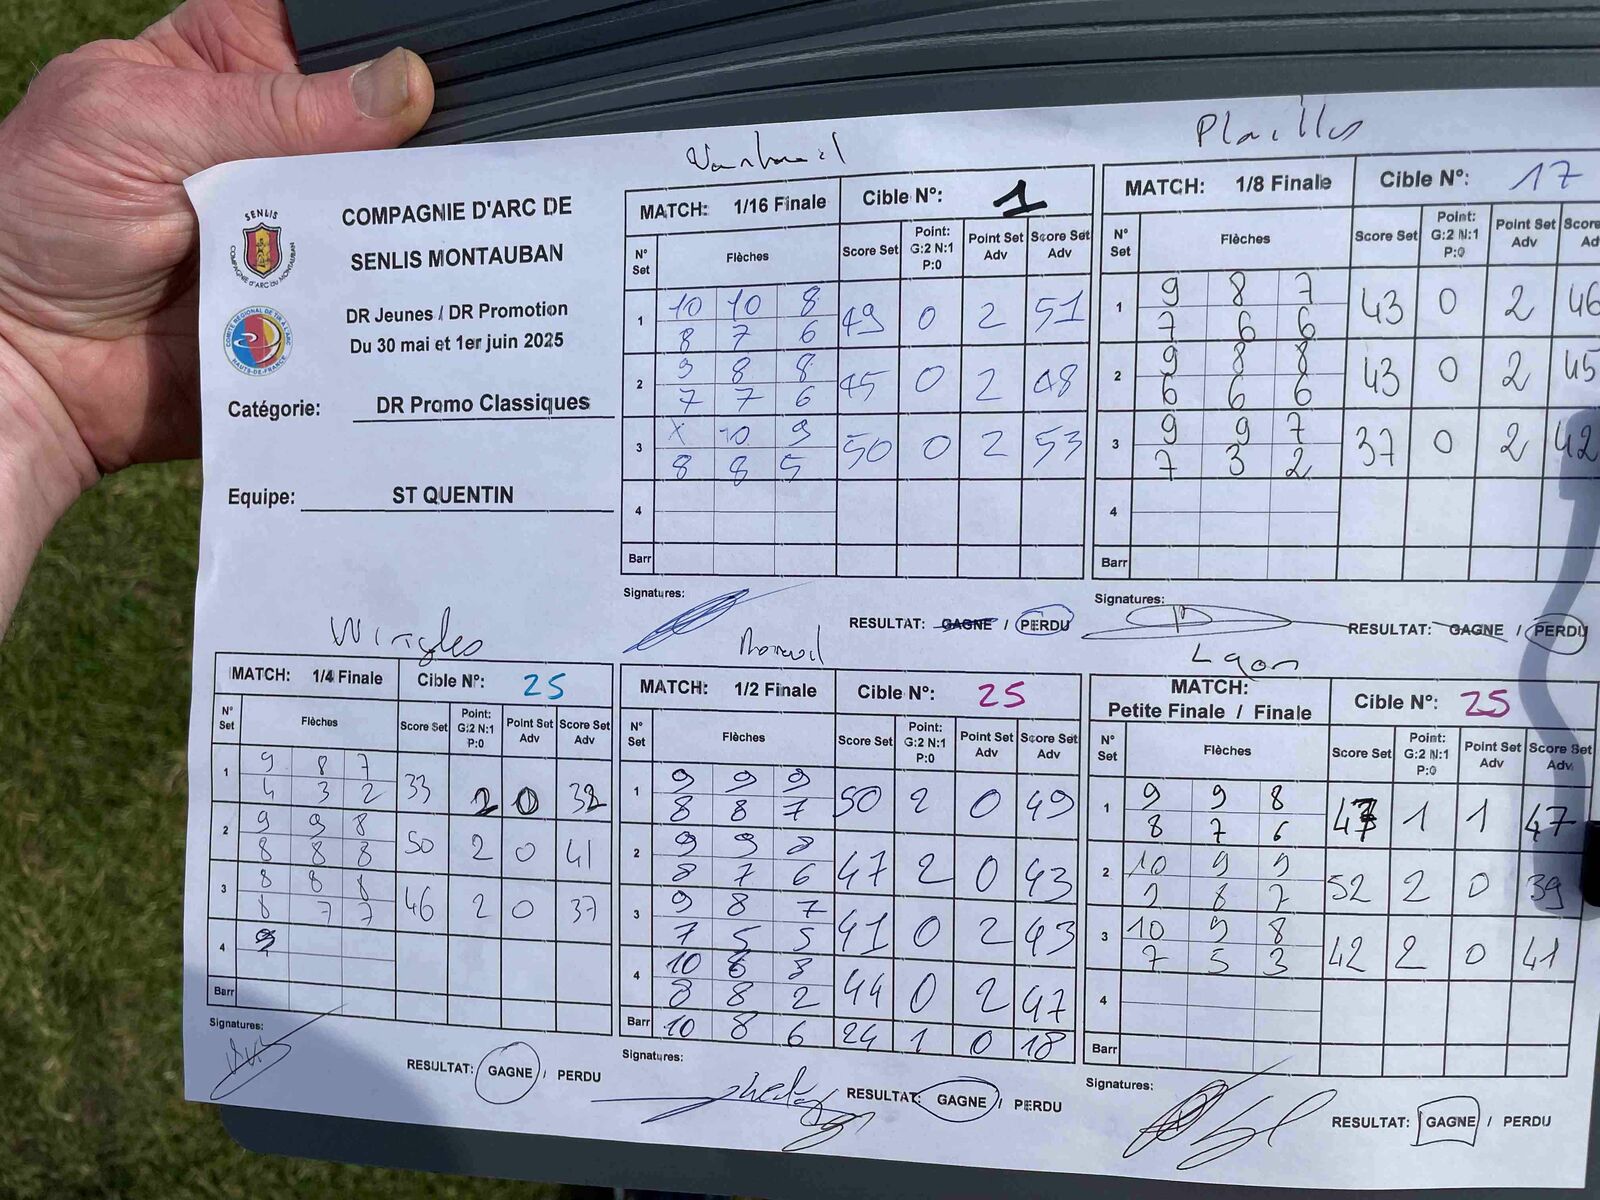 SENLIS
COMPAGNIE D'ARC DU MONTAUBAN
COMITÉ RÉGIONAL DE TIR À L'ARC
HAUTS-DE-FRANCE
COMPAGNIE D'ARC DE
SENLIS MONTAUBAN
DR Jeunes / DR Promotion
Du 30 mai et 1er juin 2025
Catégorie: DR Promo Classiques
Equipe: ST QUENTIN
MATCH: 1/16 Finale Cible N°: 1
N° Set Flèches Score Set Point: G:2 N:1 P:0 Point Set Adv Score Set Adv
1 10 10 8 49 0 2 51
8 7 6
2 9 8 8 45 0 2 48
7 7 6
3 X 10 9 50 0 2 53
8 8 5
4
Barr
Signatures:
RESULTAT: GAGNE / PERDU
Plailly
MATCH: 1/8 Finale Cible N°: 17
N° Set Flèches Score Set Point: G:2 N:1 P:0 Point Set Adv Score Ad
1 9 8 7 43 0 2 46
7 6 6
2 9 8 8 43 0 2 45
6 6 6
3 9 9 7 37 0 2 42
7 3 2
4
Barr
Signatures:
RESULTAT: GAGNE / PERDU
Wingles
MATCH: 1/4 Finale Cible N°: 25
N° Set Flèches Score Set Point: G:2 N:1 P:0 Point Set Adv Score Set Adv
1 9 8 7 33 2 0 32
4 3 2
2 9 9 8 50 2 0 41
8 8 8
3 8 8 8 46 2 0 37
8 7 7
4
Barr
Signatures:
RESULTAT: GAGNE / PERDU
MATCH: 1/2 Finale Cible N°: 25
N° Set Flèches Score Set Point: G:2 N:1 P:0 Point Set Adv Score Set Adv
1 9 9 9 50 2 0 49
8 8 7
2 9 9 8 47 2 0 43
8 7 6
3 9 8 7 41 0 2 43
7 5 5
4 10 8 8 44 0 2 47
8 8 2
Barr 10 8 6 24 1 0 18
Signatures:
RESULTAT: GAGNE / PERDU
Laon
MATCH:
Petite Finale / Finale Cible N°: 25
N° Set Flèches Score Set Point: G:2 N:1 P:0 Point Set Adv Score Set Adv
1 9 9 8 47 1 1 47
8 7 6
2 10 9 9 52 2 0 39
9 8 7
3 10 9 8 42 2 0 41
7 5 3
4
Barr
Signatures:
RESULTAT: GAGNE / PERDU